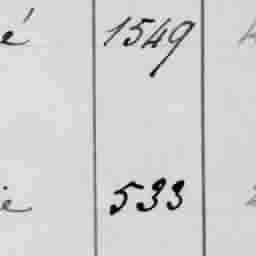 é 1549
ie 533